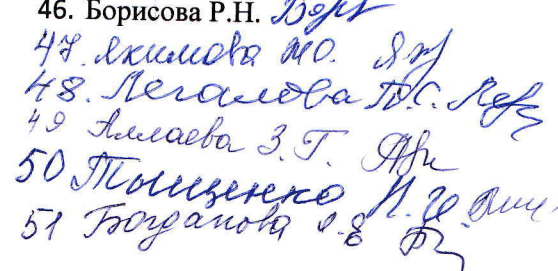 46. Борисова Р.Н.
47. Якимова М.О.
48. Легалова П.С.
49 Аллаева З.Г.
50 Тыщенко
51 Богданова